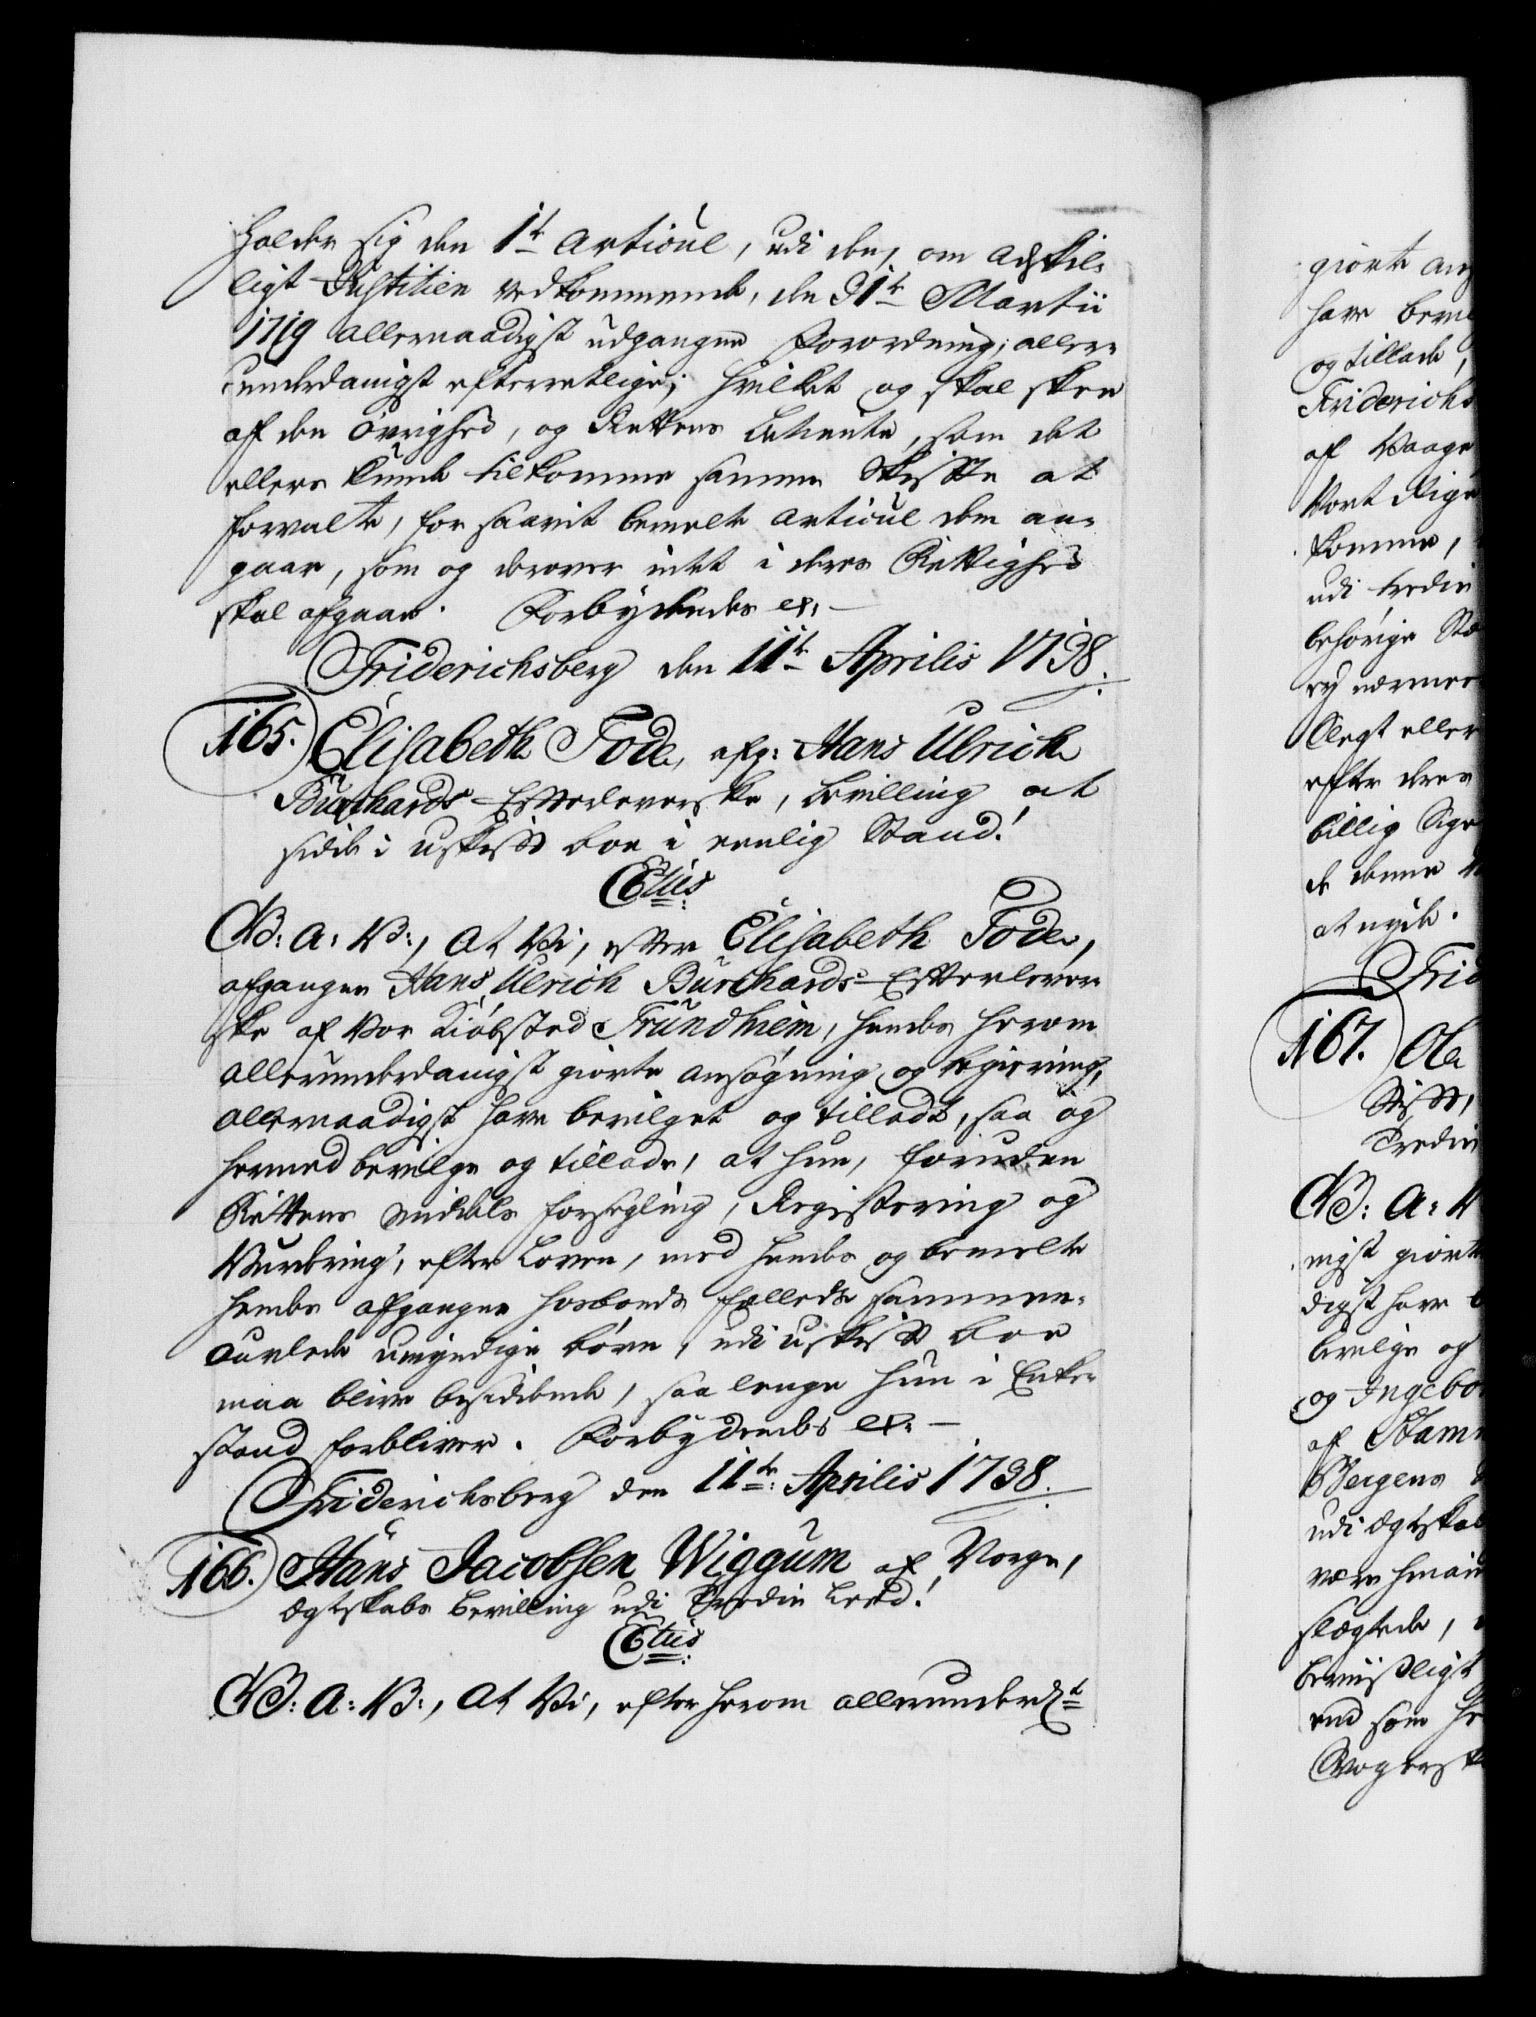 holder sig den 1te Articul, udi den, om adskil-
ligt Justitien vedkommende, den 31te Martii
1719 allernaadigst udgangne Forordning, aller-
underdanigst efterretlige; hvilket og skal skee
af den Øvrighed, og Rettens Betiente, som det
ellers kunde tilkomme samme Skifte at
forvalte, for saavit bemelte Articul dem an-
gaar, som og derover intet i deres Rettighed
skal afgaae. Forbydendes etc.
Friderichsberg den 11te Aprilis 1738.
165. Elisabeth Tode, afg: Hans Ulrich
Burchards Efterleverske, Bevilling at
sidde i uskift Boe i eenlig Stand!
C6tus
G: A: V:, At Vi, efter Elisabeth Tode,
afgangne Hans Ulrich Burchards Efterlever-
ske af Vor Kiøbsted Trundhiem, hendes herom
allerunderdanigst giorte Ansøgning og Begiering,
allernaadigst have bevilget og tilladt, saa og
hermed bevilge og tillade, at hun, foruden
Rettens Middels Forsegling, Registering og
Vurdering, efter Loven, med hendes og bemelte
hendes afgangne Hosbonds fælleds sammen-
aurlede umyndige Børn, udi uskift Boe
maa blive besiddende, saa lenge hun i Enke-
stand forbliver. Forbydendes etc.
Friderichsberg den 11te Aprilis 1738.
166. Hans Jacobsen Wiggum af Vaage,
Egteskabs Bevilling udi Tredie Leed!
C6tus
G: A: V:, At Vi, efter herom allerunderdst
giorte An
have bevil
og tillade,
Friderichs
af Vaage
Vort Rige
komme,
udi tredie
behørige Ste
ey nærmer
Slegt eller
efter deres
billig Sig
de denne
at nyde.
Frid
167. Ole
Stift,
Tredie
G: A: V
nigst giorte
digst have b
bevilge og
og Ingebo
af Ham
Bergens
udi Ægteskab
slægtede,
beviisligt
end som he